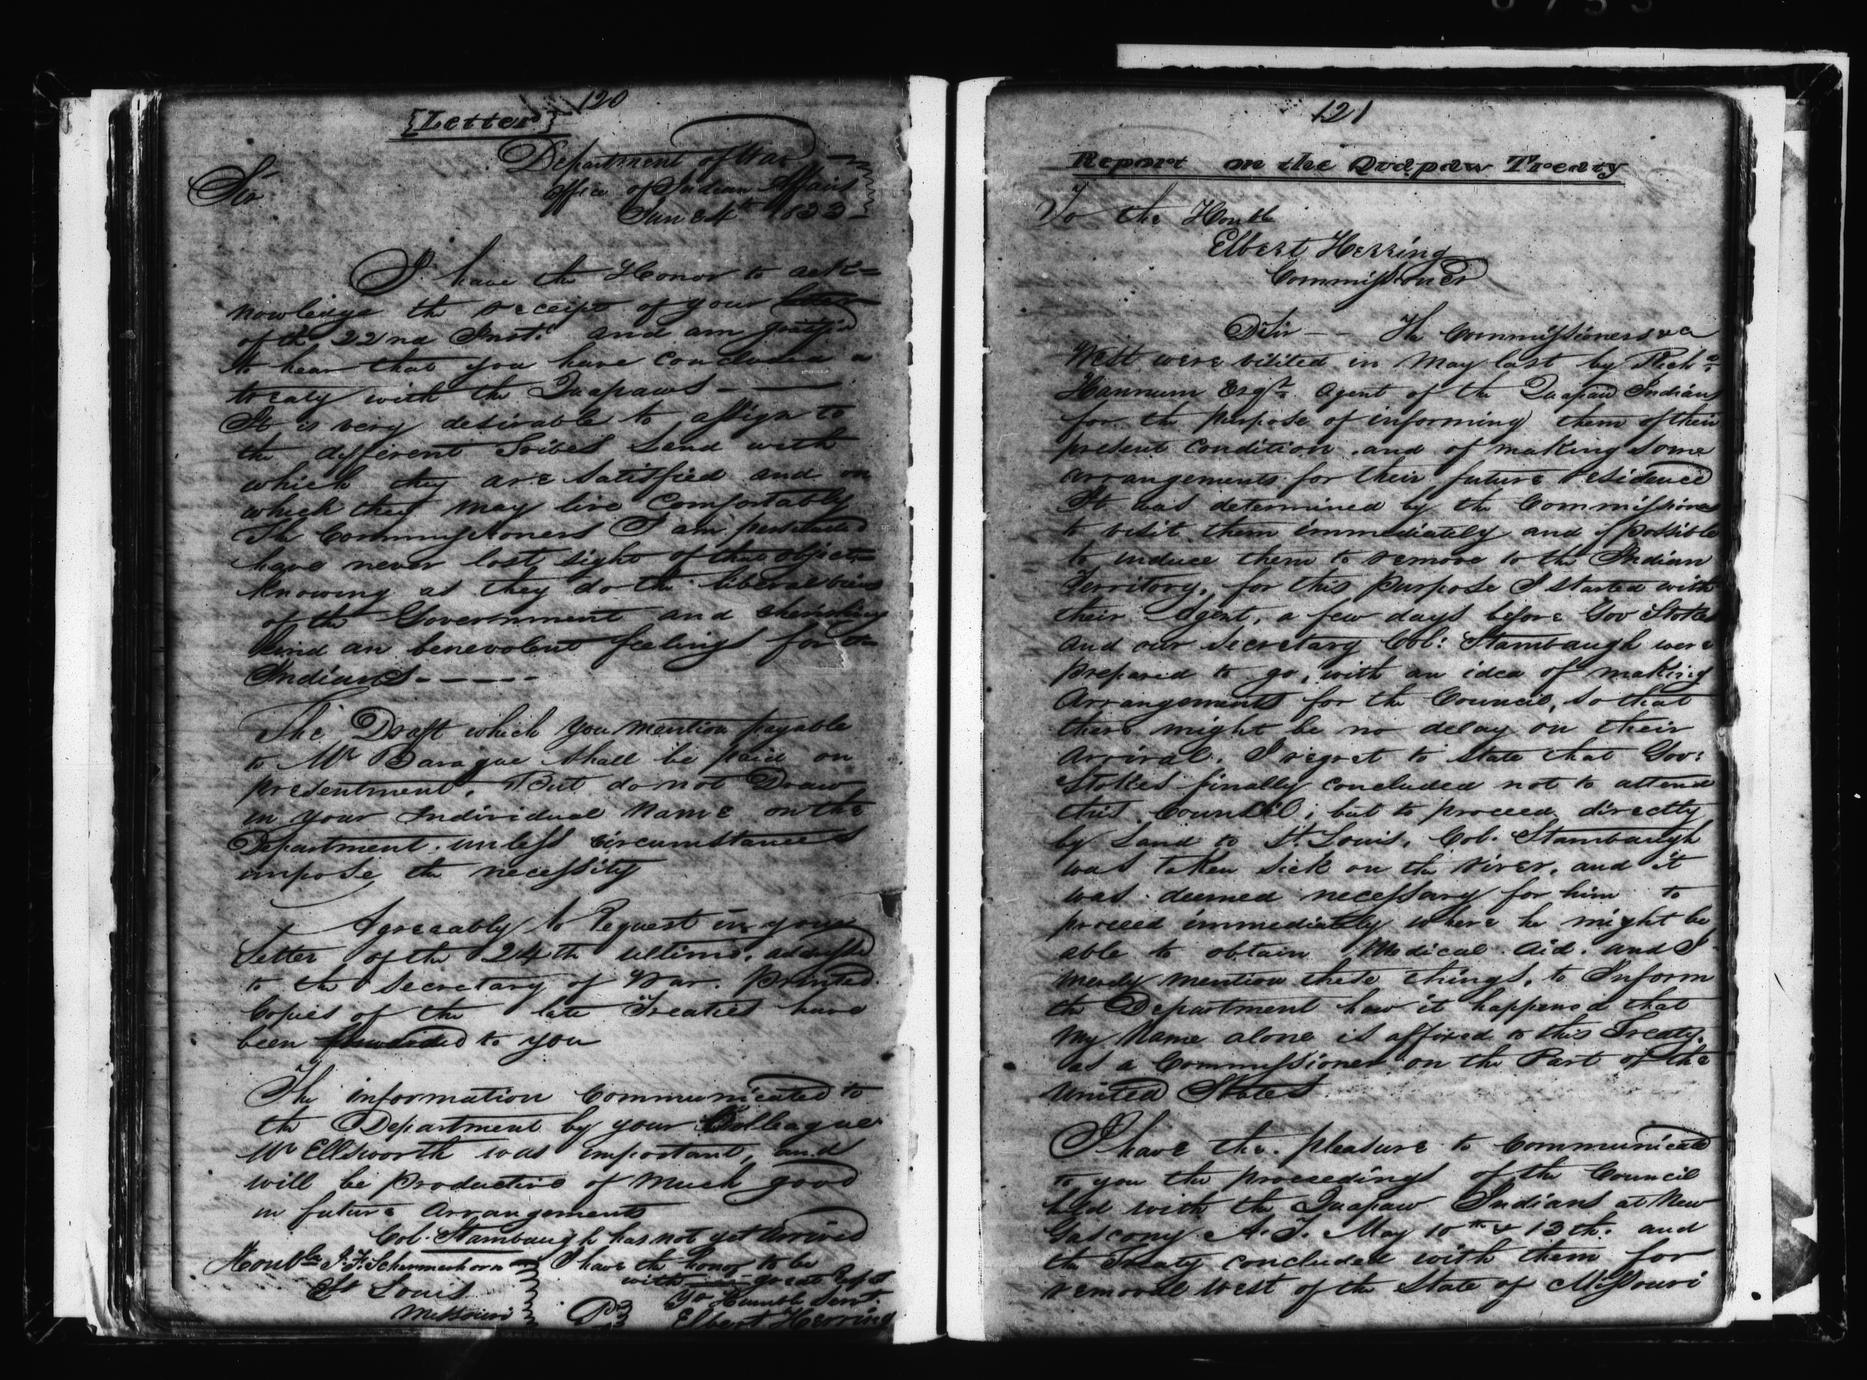 120
[Letter]
Department of War
Office of Indian Affairs
June 4th 1833
Sir
I have the Honor to ack=
nowledge the receipt of your letter
of the 22nd Inst. and am gratified
to hear that you have concluded a
treaty with the Quapaws - —
It is very desirable to assign to
the different Tribes Land with
which they are satisfied and on
which they may live Comfortably
The Commissioners I am persuaded
have never lost sight of this object=
knowing as they do the liberal views
of the Government and cherishing
kind an benevolent feelings for the
Indians - - - - -
The Draft which you mention payable
to Mr Baraque shall be paid on
presentment. But do not Draw
in your Individual Name on the
Department. unless circumstances
impose the necessity
Agreeably to Request in your
Letter of the 24th ultimo. addressed
to the Secretary of War. Printed
Copies of the late Treaties have
been forwarded to you
The information Communicated to
the Department by your Colleague
Mr Ellsworth was important, and
will be productive of Much good
in future arrangements
Col. Stambaugh has not yet arrived
Honble J. F. Schermerhorn
St Louis
Missouri
I have the honor to be
with great Respt
Yr Humble Servt.
Elbert Herring
121
Report on the Quapaw Treaty
To the Honble
Elbert Herring
Commissioner
Sir — The Commissioners &c a
West were visited in May last by Richd
Hannum Esqr. Agent of the Quapaw Indians
for the purpose of informing them of their
present condition. and of making some
arrangements for their future residence
It was determined by the Commissioners
to visit them immediately and if possible
to induce them to remove to the Indian
Territory. for this purpose I started with
their Agent, a few days before Gov Stokes
and our secretary Col: Stambaugh were
prepared to go, with an idea of making
Arrangements for the Council, so that
there might be no delay on their
arrival. I regret to state that Gov:
Stokes finally concluded not to attend
this Council; but to proceed directly
by Land to St. Louis. Col. Stambaugh
was taken sick on the river. and it
was deemed necessary for him to
proceed immediately where he might be
able to obtain Medical aid. and I
merely mention these things, to Inform
the Department how it happened that
my Name alone is affixed to this Treaty.
as a Commissioner on the Part of the
United States
I have the pleasure to Communicate
to you the proceedings of the Council
held with the Quapaw Indians at New
Gascony A. T. May 10th & 13th. and
the Treaty concluded with them for
removal West of the State of Missouri